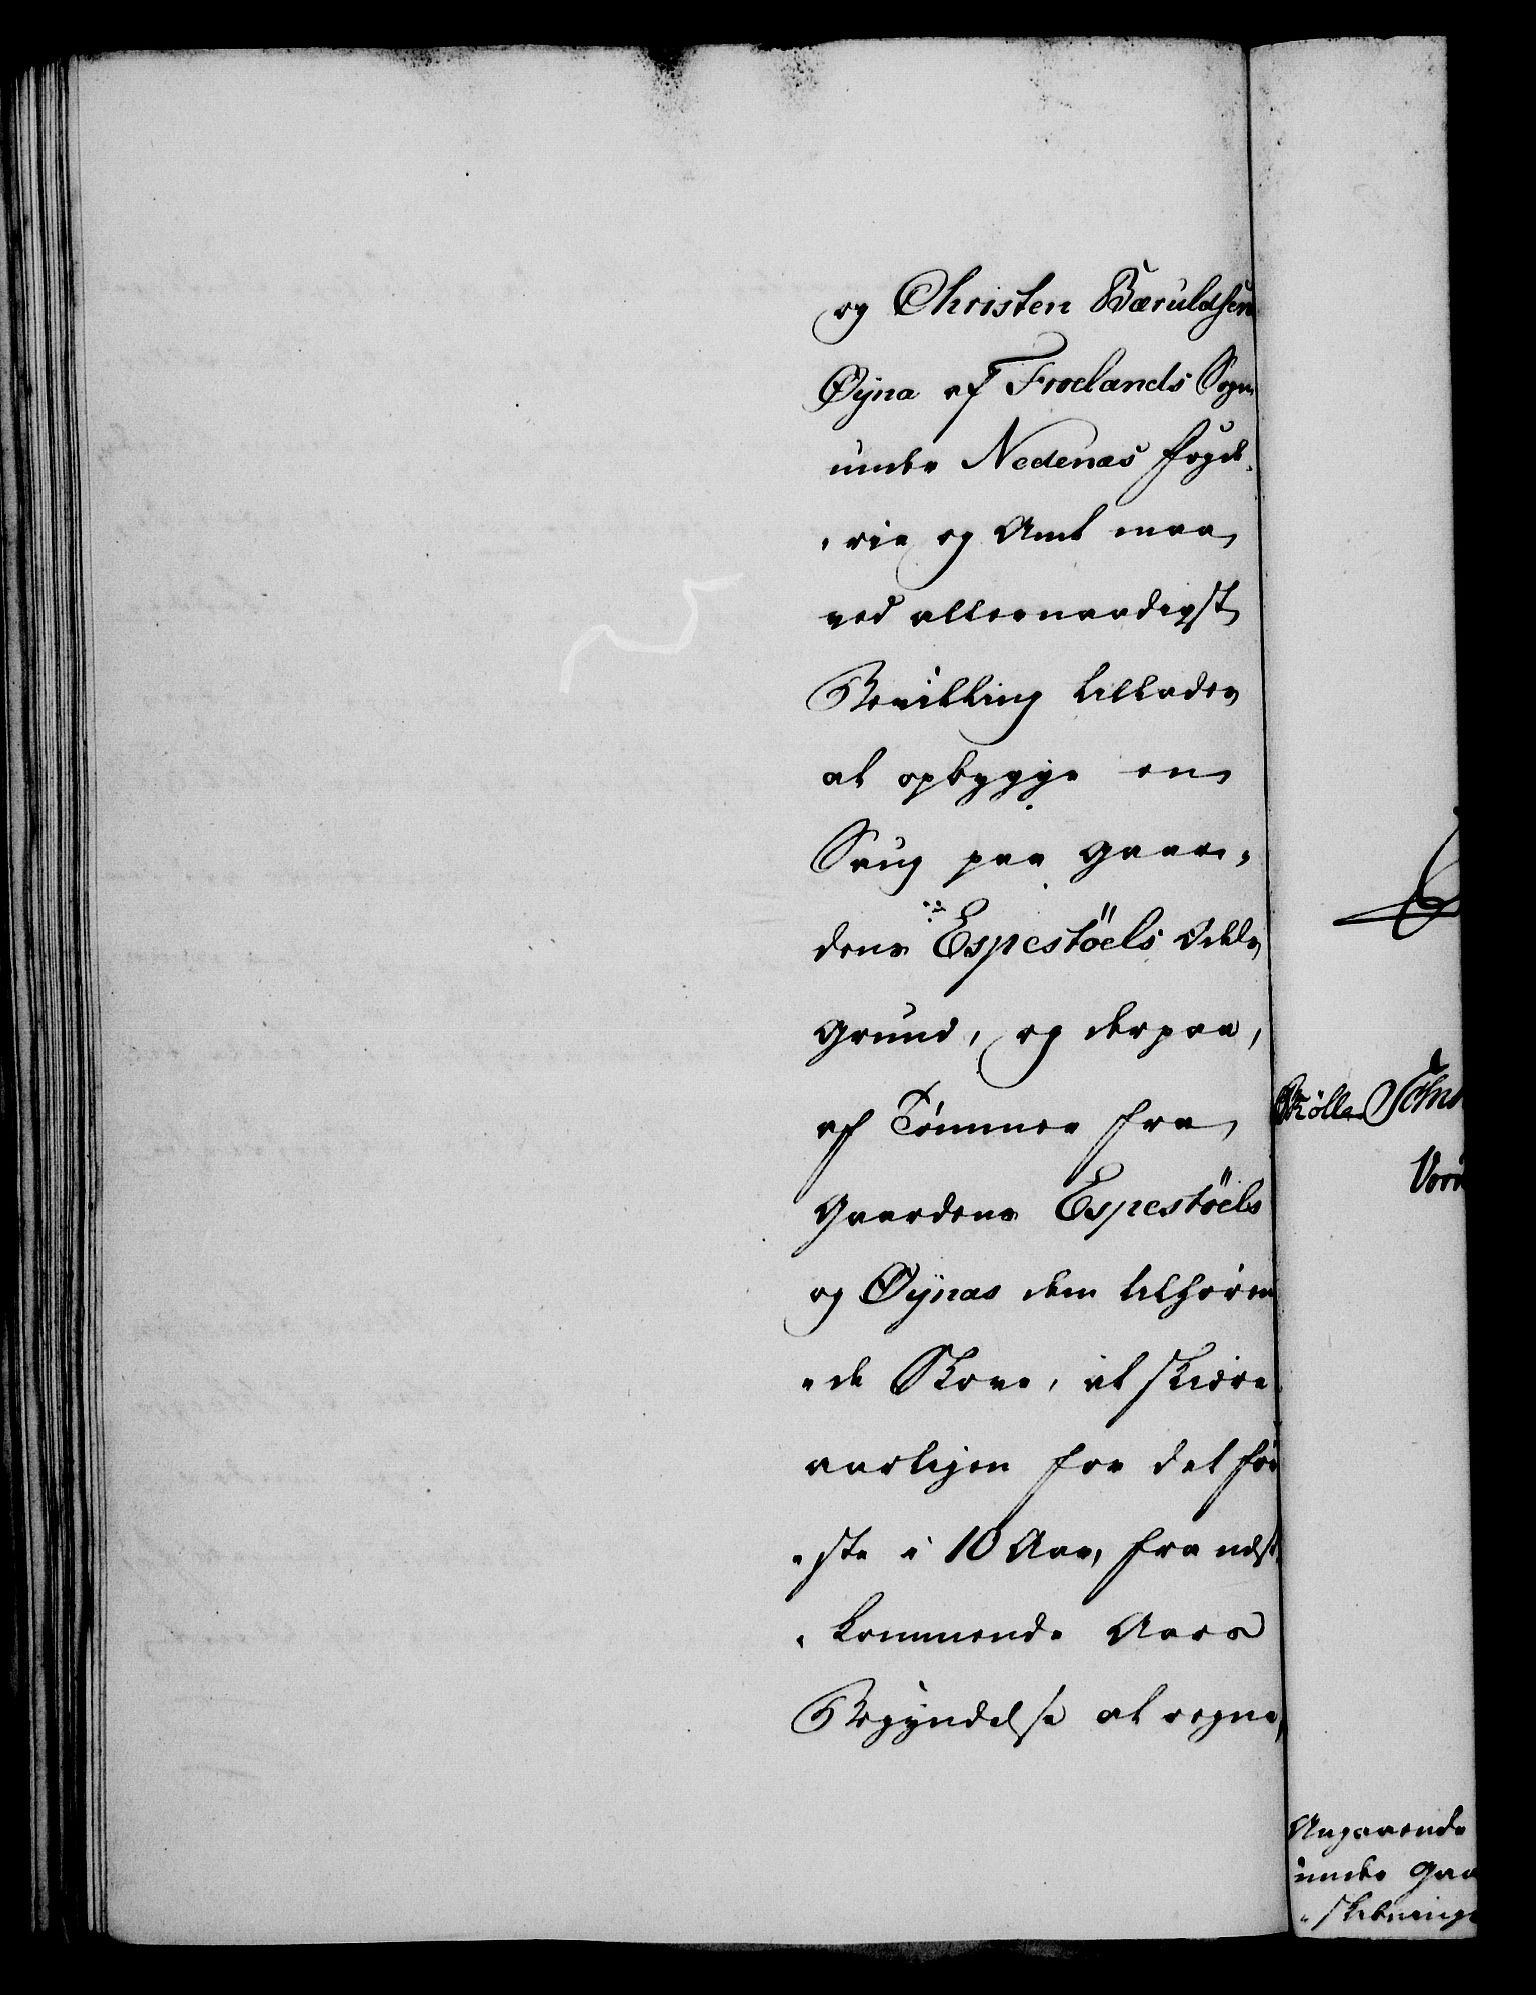 og Christen Bæruldsen
Øyna af Froelands Sogn
under Nedenæs Fogde,
,rie og Amt maa
ved allernaadigst
Bevilling tillades
at opbygge en
Saug paa Gaar,
dens Espestöels Odels
Grund, og derpaa,
af Tømmer fra
Gaardens Espestöels
og Øÿnas dem tilhøren
,de Skove, at skiære
aarligen for det før
,ste i 10 Aar, fra næst
,kommende Aars
Begyndelse at regne,
Angaaende
under Gaa